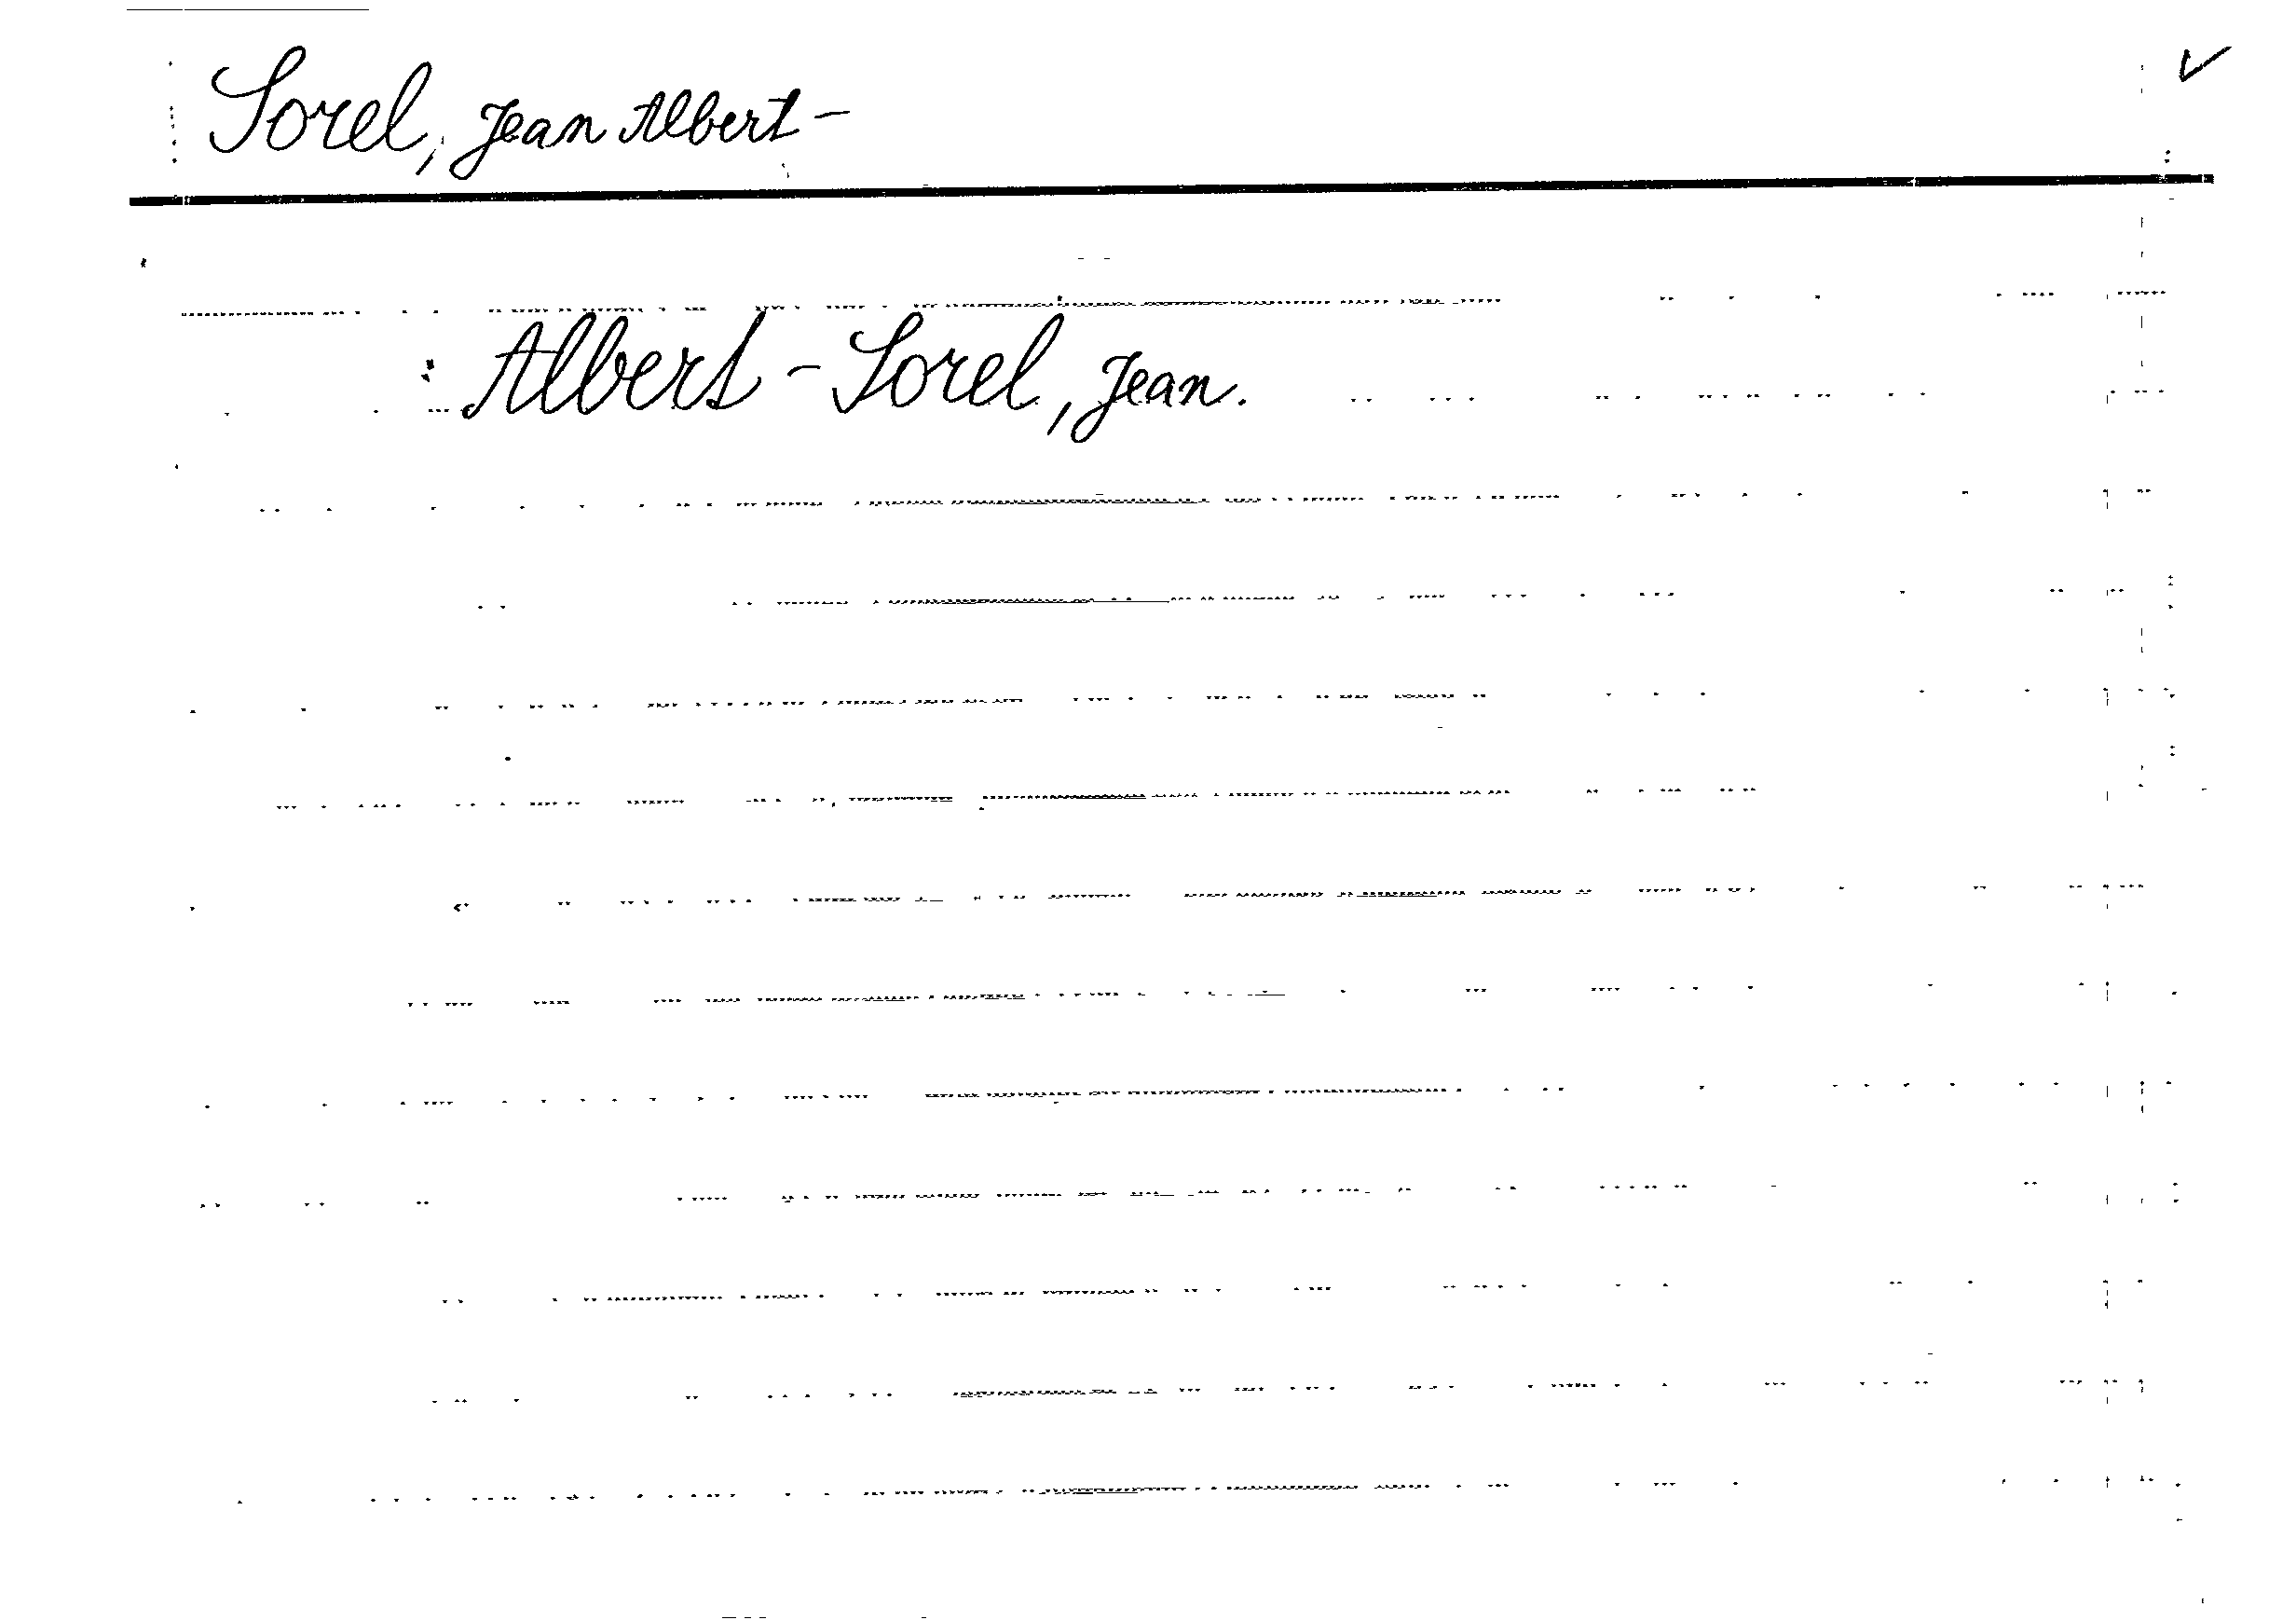 Sorel, Jean Albert -
: Albert - Sorel, Jean.